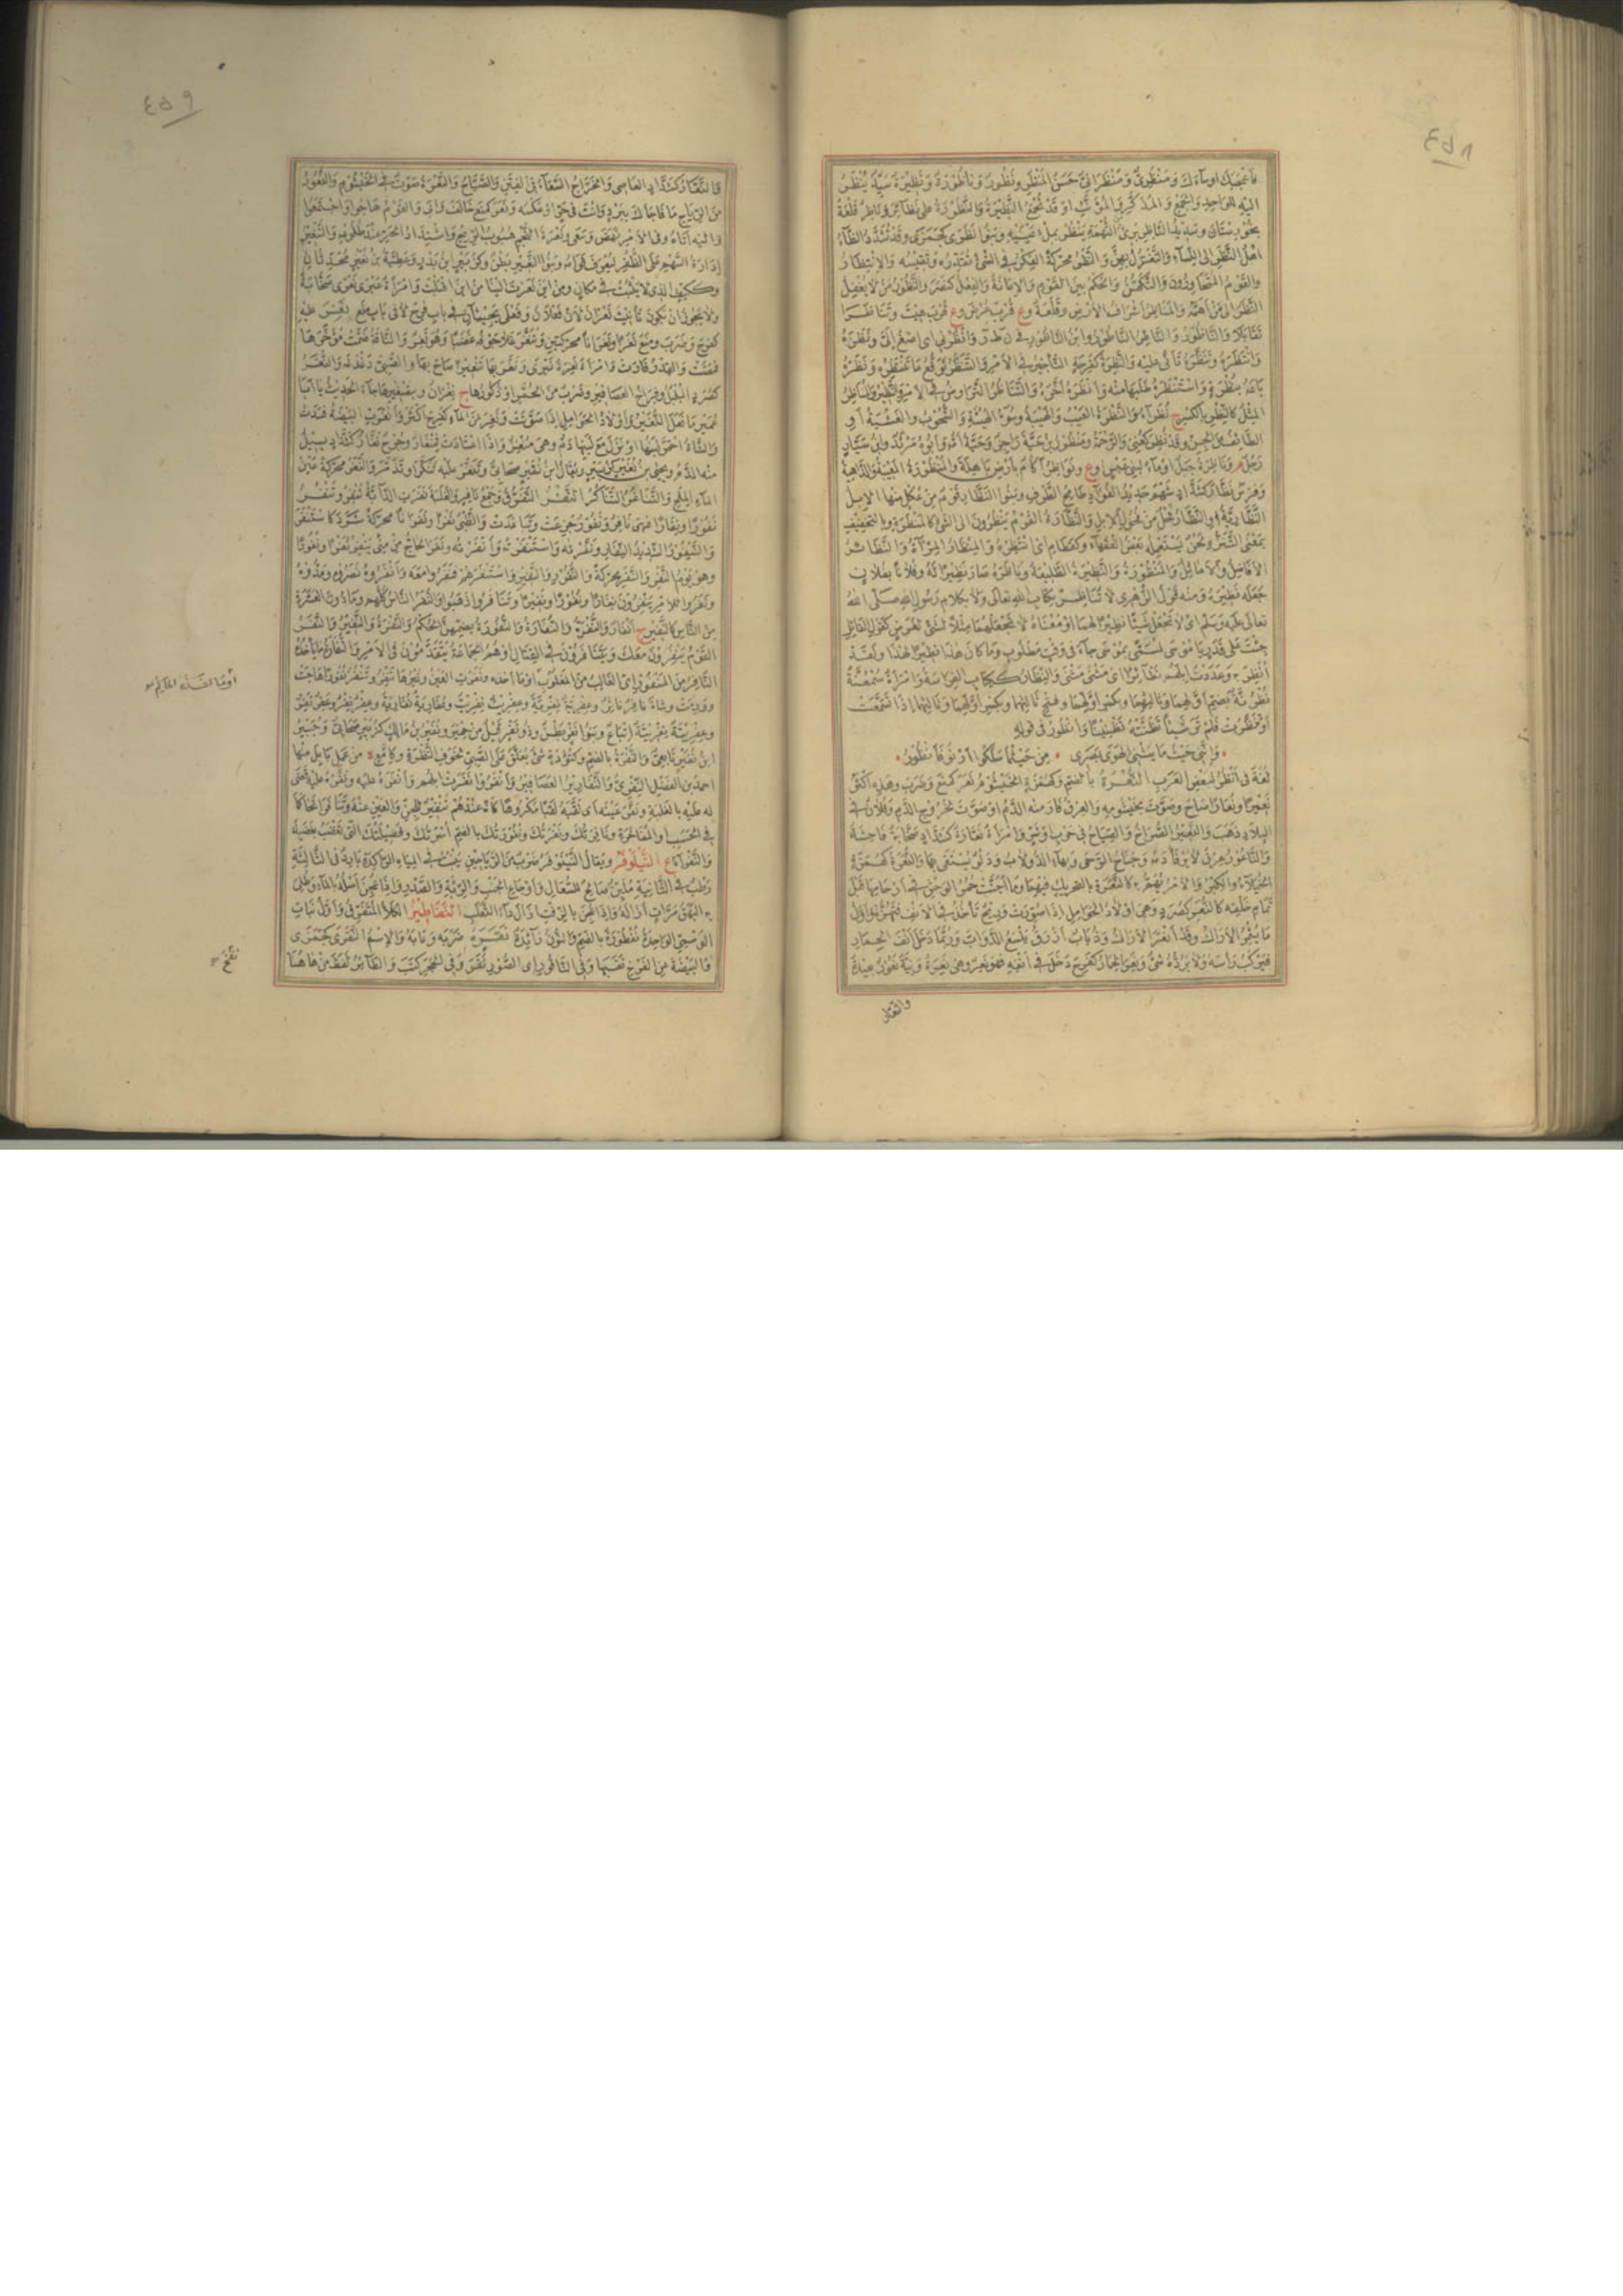 ٤٥٨
فأعجبك أو ساءك ومنظري ومنظراني حسن المنظر ونظور ونظورة وناظورة ونظيرة سيد ينظر
إليه للواحد والجمع والمذكر والمؤنث أو قد تجمع النظيرة والنظورة على نظائر وناظر قلعة
بخوزستان وسديد الناظر برئ من التهمة ينظر بملء عينيه وبنو نظرى كجمزى وقد تشدد الظاء
أهل النظر إلى النساء والتغزل بهن والنظر محركة الفكر في الشئ تقدره وتقيسه والانتظار
والقوم المتجاورون والتكهن والحكم بين القوم والإعانة والفعل كنصر والنظور من لا يغفل
النظر إلى من أهمه والمناظر أشراف الأرض وقلعة وع قرب عرض وع قرب هيت وتناظرا
تقابلا والناظور والناظر الناطور وابن الناطور في ن ط ر وانظرني أي اصغ إلي ونظره
وانتظره وتنظره تأنى عليه والنظرة كفرحة التأخير في الأمر والتنظر توقع ما تنتظره ونظره
باعه بنظرة واستنظره طلبها منه وأنظره أخره والتناظر التراوض في الأمر والنظير والمناظر
المثل كالنظر بالكسر ج نظراء والنظرة العيب والهيبة وسوء الهيئة والشحوب والغشية أو
الطائف من الجن وقد نظر كعني والرحمة ومنظور بن حبة راجز وحبة أمه وأبوه مرثد وابن سيار
رجل م وناظرة جبل أو ماء لبني عبس أو ع ونواظر آكام بأرض باهلة والمنظورة المعيبة والداهية
وفرس نظار كشداد شهم حديد الفؤاد طامح الطرف وبنو النظار قوم من عكل منها الإبل
النظارية أو النظار فحل من فحول الإبل والنظارة القوم ينظرون إلى الشئ كالمنظرة وبالتخفيف
بمعنى التنزه لحن يستعمله بعض الفقهاء وكقطام أي انتظر والمنظار المرآة والنظائر
الأفاضل والأماثل والنظيرة والنظورة الطليعة وناظره صار نظيرا له وفلانا بفلان
جعله نظيره ومنه قول الزهري لا تناظر بكتاب الله تعالى ولا بكلام رسول الله صلى الله
تعالى عليه وسلم أي لا تجعل شيئا نظيرا لهما أو معناه لا تجعلهما مثلا لشئ لغرض كقول القائل
جئت على قدر يا موسى لمسمى بموسى جاء في وقت مطلوب وما كان هذا نظيرا لهذا ولقد
أنظرته وعددت إبلهم نظائر أي مثنى مثنى والنظار ككتاب الفراسة وامرأة سمعنة
نظرنة بضم أولهما وثالثهما وبكسر أولهما وفتح ثالثهما وبكسر أولهما وثالثهما إذا تسمعت
أو تنظرت فلم تر شيئا تظنته تظنيا وأنظور في قوله
وإنني حيث ما يثني الهوى بصري من حيث ما سلكوا أدنو فأنظور
لغة في أنظر لبعض العرب النعرة بالضم وكهمزة الخيشوم نعر كمنع وضرب وهذه أكثر
نعيرا ونعارا صاح وصوت بخيشومه والعرق فار منه الدم أو صوت لخروج الدم وفلان في
البلاد ذهب والنعير الصراخ والصياح في حرب أو شر وامرأة نعارة كشداد صخابة فاحشة
والناعور عرق لا يرقأ دمه وجناح الرحى وبهاء الدولاب ودلو يستقى بها والنعرة كهمزة
الخيلاء والكبر والأمر يهم به كالنعرة بالتحريك فيهما وما أجنت حمر الوحش في أرحامها قبل
تمام خلقه كالنعر كصرد وهي أولاد الحوامل إذا صورت وريح تأخذ في الأنف فتهزه وأول
ما يثمر الأراك وقد أنعر الأراك وذباب أزرق يلسع الدواب وربما دخل أنف الحمار
فيركب رأسه ولا يرده شئ ونعر الحمار كفرح دخل في أنفه فهو نعر وهي نعرة ونية نعور بعيدة
والنعار
٤٥٩
والنعار كشداد العاصي والخراج السعاء في الفتن والصياح والنعرة صوت في الخيشوم والنعور
من الرياح ما فاجأك ببرد وأنت في حر أو عكسه ونعر كمنع خالف وأبى والقوم هاجوا واجتمعوا
وإليه أتاه وفي الأمر نهض وسعى ونعرة النجم هبوب الريح واشتداد الحر عند طلوعه والتنعير
إدارة السهم على الظفر ليعرف قوامه وبنو النعير بطن وكزبير ابن بدر وعطية بن نعير محدثان
وككتف الذي لا يثبت في مكان ومن أين نعرت إلينا من أين أقبلت وامرأة غيرى نعرى صخابة
ولا يجوز أن تكون تأنيث نعران لأن فعلان وفعلى يجيئان في باب فرح لا في باب منع نغر عليه
كفرح وضرب ومنع نغرا ونغرانا محركتين وتنغر غلا جوفه غضبا وهو نغر والناقة ضمت مؤخرها
فمضت والقدر فارت وامرأة نغرة غيرى ونغر بها تنغيرا صاح بها والصبي دغدغه والنغر
كصرد البلبل وفراخ العصافير وضرب من الحمر أو ذكورها ج نغران وبتصغيرها جاء الحديث يا أبا
عمير ما فعل النغير وأولاد الحوامل إذا صوتت ونغر من الماء كفرح أكثر وأنغرت البيضة فسدت
والشاة احمر لبنها أو نزل مع لبنها دم وهي منغر وإذا اعتادت فمنغار وجرح نغار كشداد يسيل
منه الدم ويحيى بن نغير كزبير ويقال ابن نفير صحابي وتنغر عليه تنكر أو تذمر والنغر محركة عين
الماء الملح والتناغر التناكر النفر التفرق وجمع نافر والغلبة نفرت الدابة تنفر وتنفر
نفورا ونفارا فهي نافر ونفور جزعت وتباعدت والظبي نفرا ونفرانا محركة شرد كاستنفر
والينفور الشديد النفار ونفرته واستنفرته وأنفرته ونفر الحاج من منى ينفر نفرا ونفورا
وهو يوم النفر والنفر محركة والنفور والنفير واستنفرهم فنفروا معه وأنفروه نصروه ومدوه
ونفروا للأمر ينفرون نفارا ونفورا ونفيرا وتنافروا ذهبوا والنفر الناس كلهم وما دون العشرة
من الناس كالنفير ج أنفار والنفرة والنفارة والنفورة بضمهن الحكم والنفرة والنفير والنفر
القوم ينفرون معك ويتنافرون في القتال أو هم الجماعة يتقدمون في الأمر والنفارة ما يأخذه
النافر من المنفور أي الغالب من المغلوب أو ما أخذه ونفرت العين وغيرها تنفر وتنفر نفورا هاجت
وورمت وشاة نافر ناثر وعفرية نفرية وعفريت نفريت ونفارية وعفر نفر وعفر نفر
وعفريتة نفريتة إتباع وبنو نفر بطن وذو نفر قيل من حمير ونفير بن مالك كزبير صحابي وجبير
ابن نفير تابعي والنفرة بالضم وكتؤدة شئ يعلق على الصبي لخوف النظرة وكإمع ة من عمل بابل منها
أحمد بن الفضل النفري والنفارير العصافير وأنفروا نفرت إبلهم وأنفره عليه ونفره عليه قضى
له عليه بالغلبة ونفر عنه أي لقبه لقبا مكروها كأنه عندهم تنفير للجن والعين عنه وتنافرا تحاكما
في الحسب والمفاخرة ونافرتك ونفرتك ونفورتك بالضم أسرتك وفصيلتك التي تغضب لغضبك
والنفراء ع النيلوفر ويقال النينوفر ضرب من الرياحين ينبت في المياه الراكدة بارد في الثالثة
رطب في الثانية ملين صالح للسعال وأوجاع الجنب والرئة والصدر وإذا عجن أصله بالماء وطلي
به البهق مرات أزاله وإذا عجن بالزفت أزال داء الثعلب النفاطير الكلأ المتفرق وأول نبات
الوسمي الواحدة نفطورة بالضم والنون زائدة نقره ضربه وعابه والاسم النقرى كجمزى
والبيضة عن الفرخ نقبها وفي الناقور أي الصور نفخ وفي الحجر كتب والطائر لقط من هاهنا
نفخ